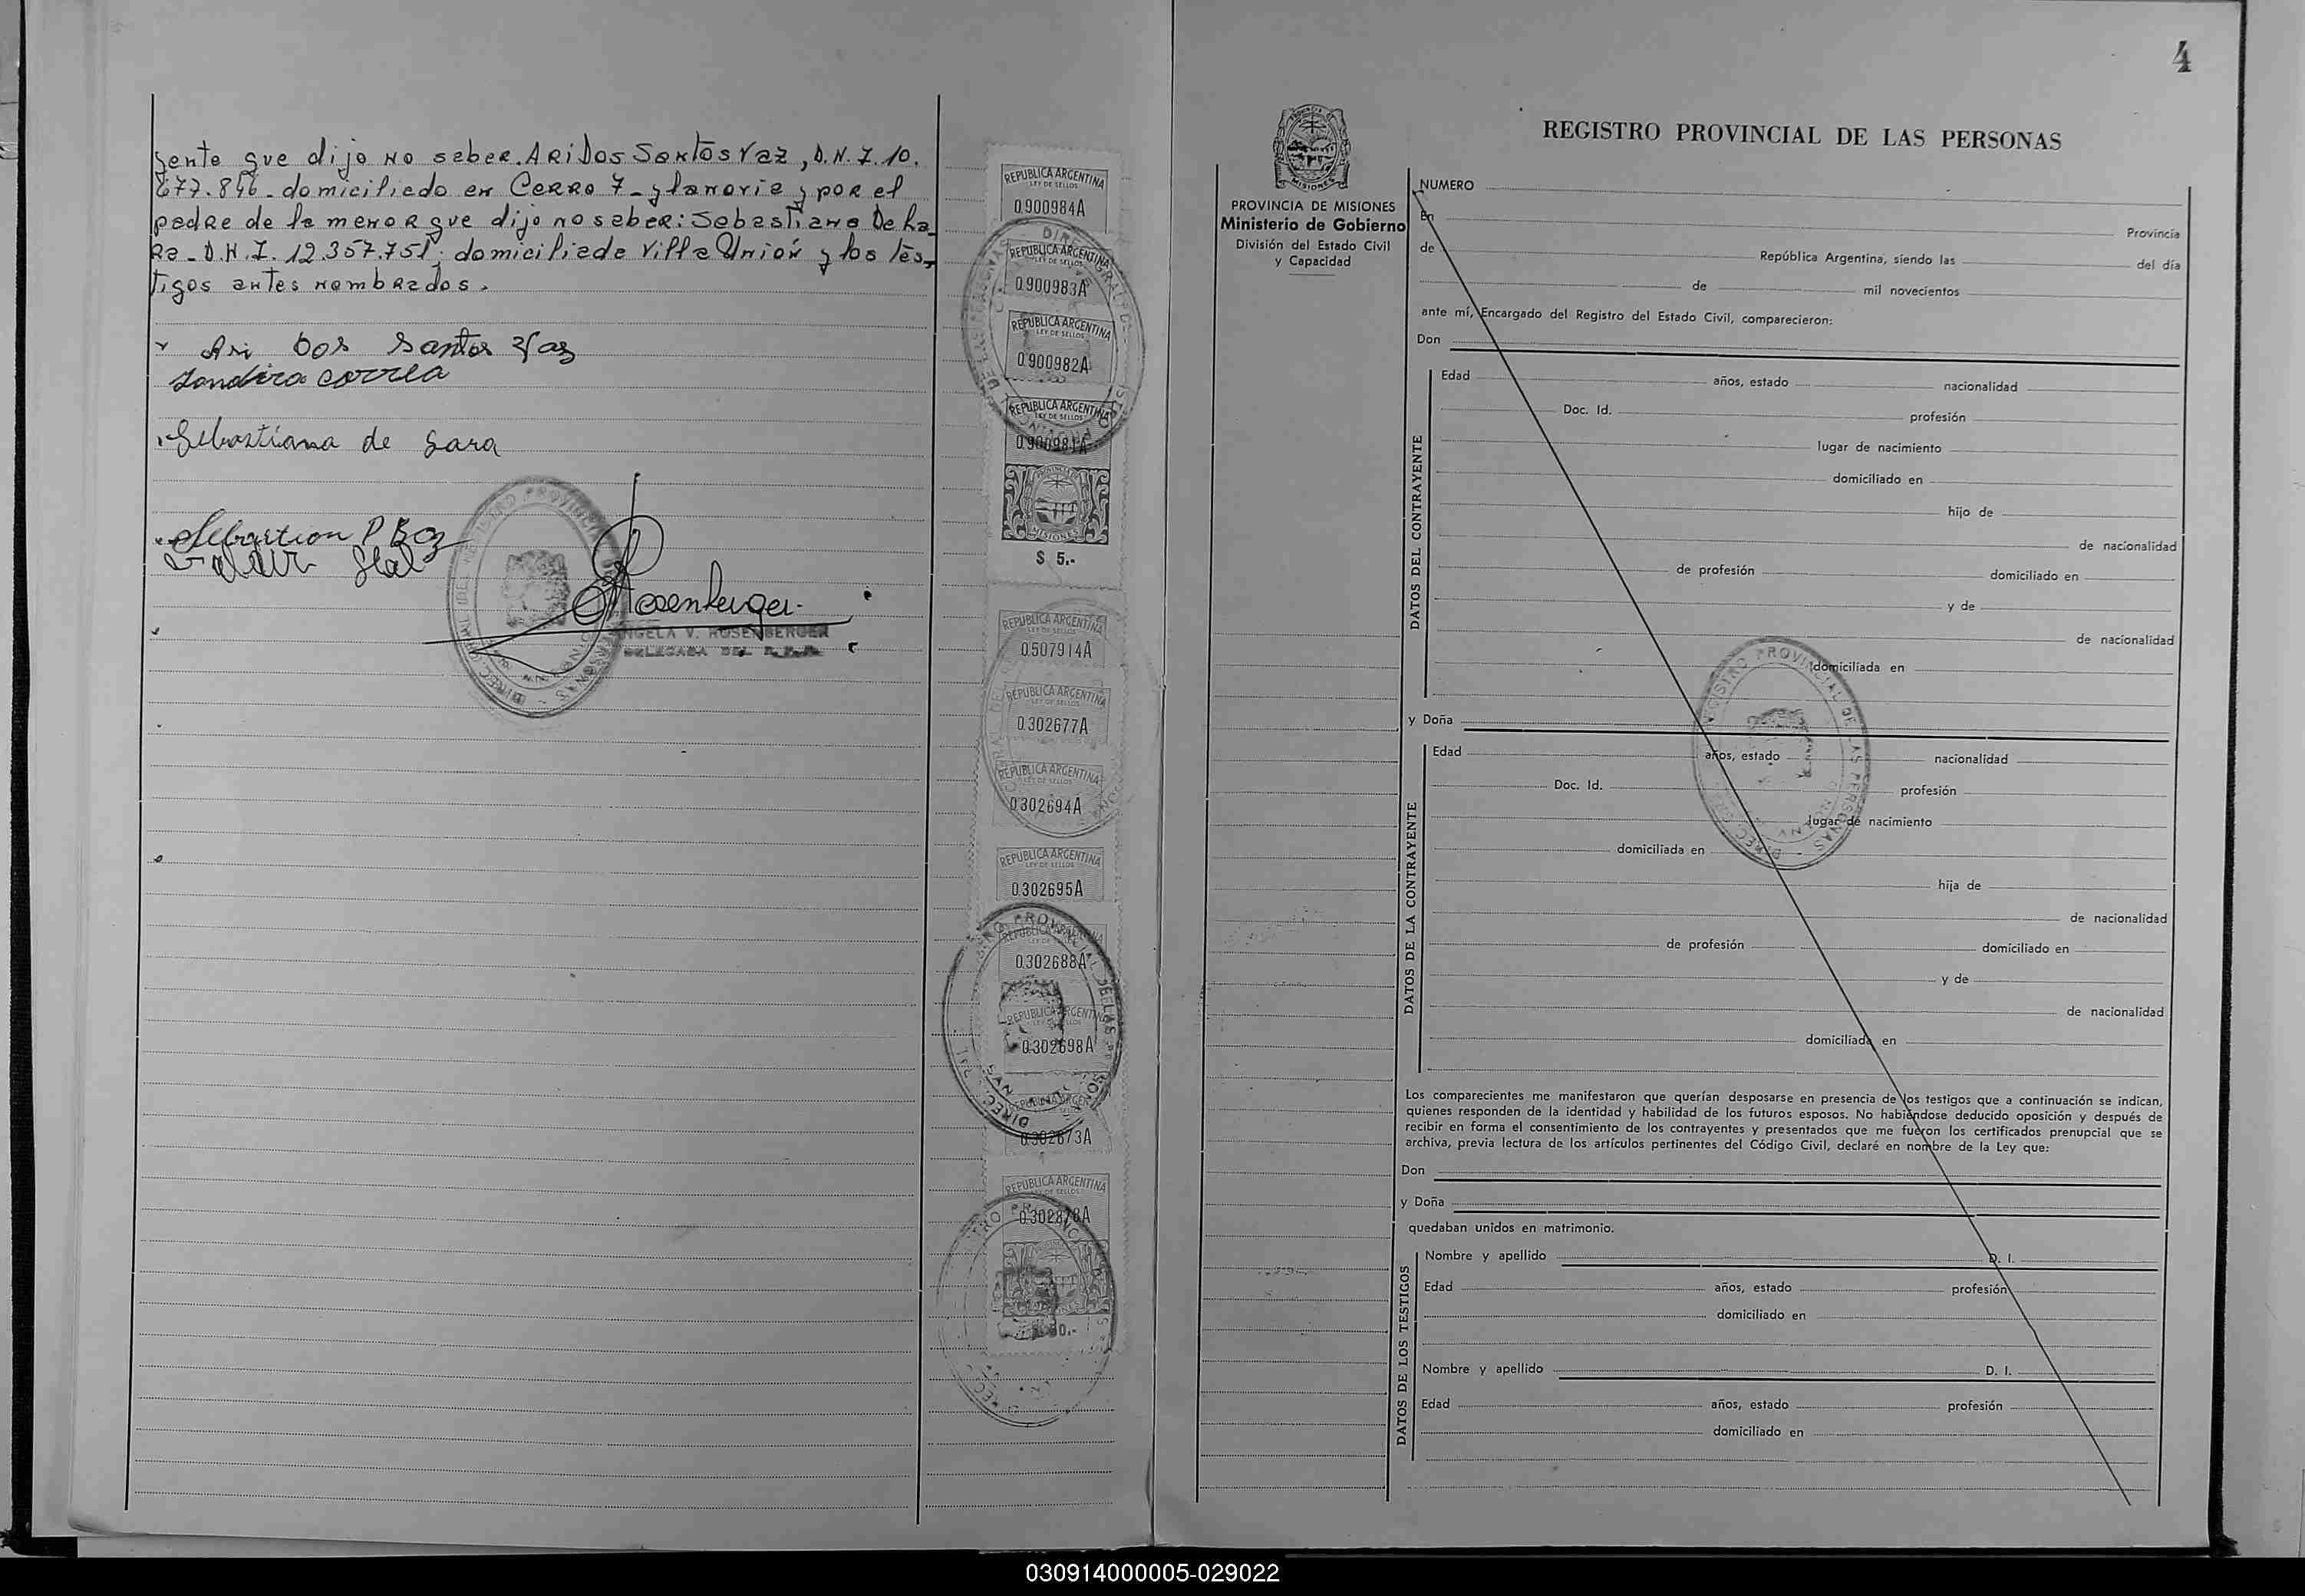 yente que dijo no saber. Ari Dos Santos Vaz, D.N.I. 10.
677.846 - domiciliado en Cerro 7 - glanoria y por el
padre de la menor que dijo no saber: Sebastiana De La
Ra - D.N.I. 12.357.751, domiciliada Villa Unión y los tes
tigos antes nombrados.
Ari Dos Santos Vaz
Jandira correa
Sebastiana de Lara
Sebastion P
Rosenberger
ANGELA V. ROSENBERGER
DELEGADA DEL R.P.P.
REPUBLICA ARGENTINA
LEY DE SELLOS
0.900984A
REPUBLICA ARGENTINA
LEY DE SELLOS
0.900983A
REPUBLICA ARGENTINA
LEY DE SELLOS
0.900982A
REPUBLICA ARGENTINA
LEY DE SELLOS
0.900981A
PROVINCIA DE
MISIONES
$ 5.-
REPUBLICA ARGENTINA
LEY DE SELLOS
0.507914A
REPUBLICA ARGENTINA
LEY DE SELLOS
0.302677A
REPUBLICA ARGENTINA
LEY DE SELLOS
0.302694A
REPUBLICA ARGENTINA
LEY DE SELLOS
0.302695A
REPUBLICA ARGENTINA
LEY DE SELLOS
0.302688A
REPUBLICA ARGENTINA
LEY DE SELLOS
0.302698A
REPUBLICA ARGENTINA
0.302673A
REPUBLICA ARGENTINA
LEY DE SELLOS
4
REGISTRO PROVINCIAL DE LAS PERSONAS
PROVINCIA DE MISIONES
Ministerio de Gobierno
División del Estado Civil
y Capacidad
NUMERO
En Provincia
de República Argentina, siendo las del día
de mil novecientos
ante mí, Encargado del Registro del Estado Civil, comparecieron:
Don
DATOS DEL CONTRAYENTE
Edad años, estado nacionalidad
Doc. Id. profesión
lugar de nacimiento
domiciliado en
hijo de
de nacionalidad
de profesión domiciliado en
y de
de nacionalidad
domiciliada en
REGISTRO PROVINCIAL DE LAS PERSONAS
y Doña
DATOS DE LA CONTRAYENTE
Edad años, estado nacionalidad
Doc. Id. profesión
lugar de nacimiento
domiciliada en
hija de
de nacionalidad
de profesión domiciliado en
y de
de nacionalidad
domiciliada en
Los comparecientes me manifestaron que querían desposarse en presencia de los testigos que a continuación se indican,
quienes responden de la identidad y habilidad de los futuros esposos. No habiéndose deducido oposición y después de
recibir en forma el consentimiento de los contrayentes y presentados que me fueron los certificados prenupcial que se
archiva, previa lectura de los artículos pertinentes del Código Civil, declaré en nombre de la Ley que:
Don
y Doña
quedaban unidos en matrimonio.
DATOS DE LOS TESTIGOS
Nombre y apellido D. I.
Edad años, estado profesión
domiciliado en
Nombre y apellido D. I.
Edad años, estado profesión
domiciliado en
030914000005-029022